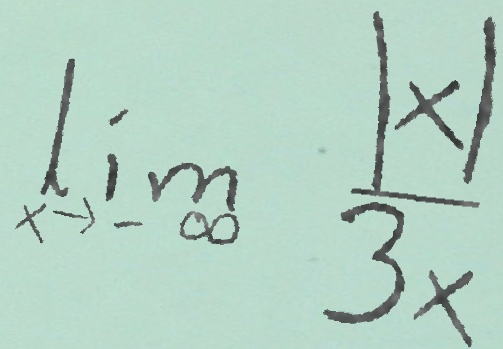 lim x→-∞ |x|/3x